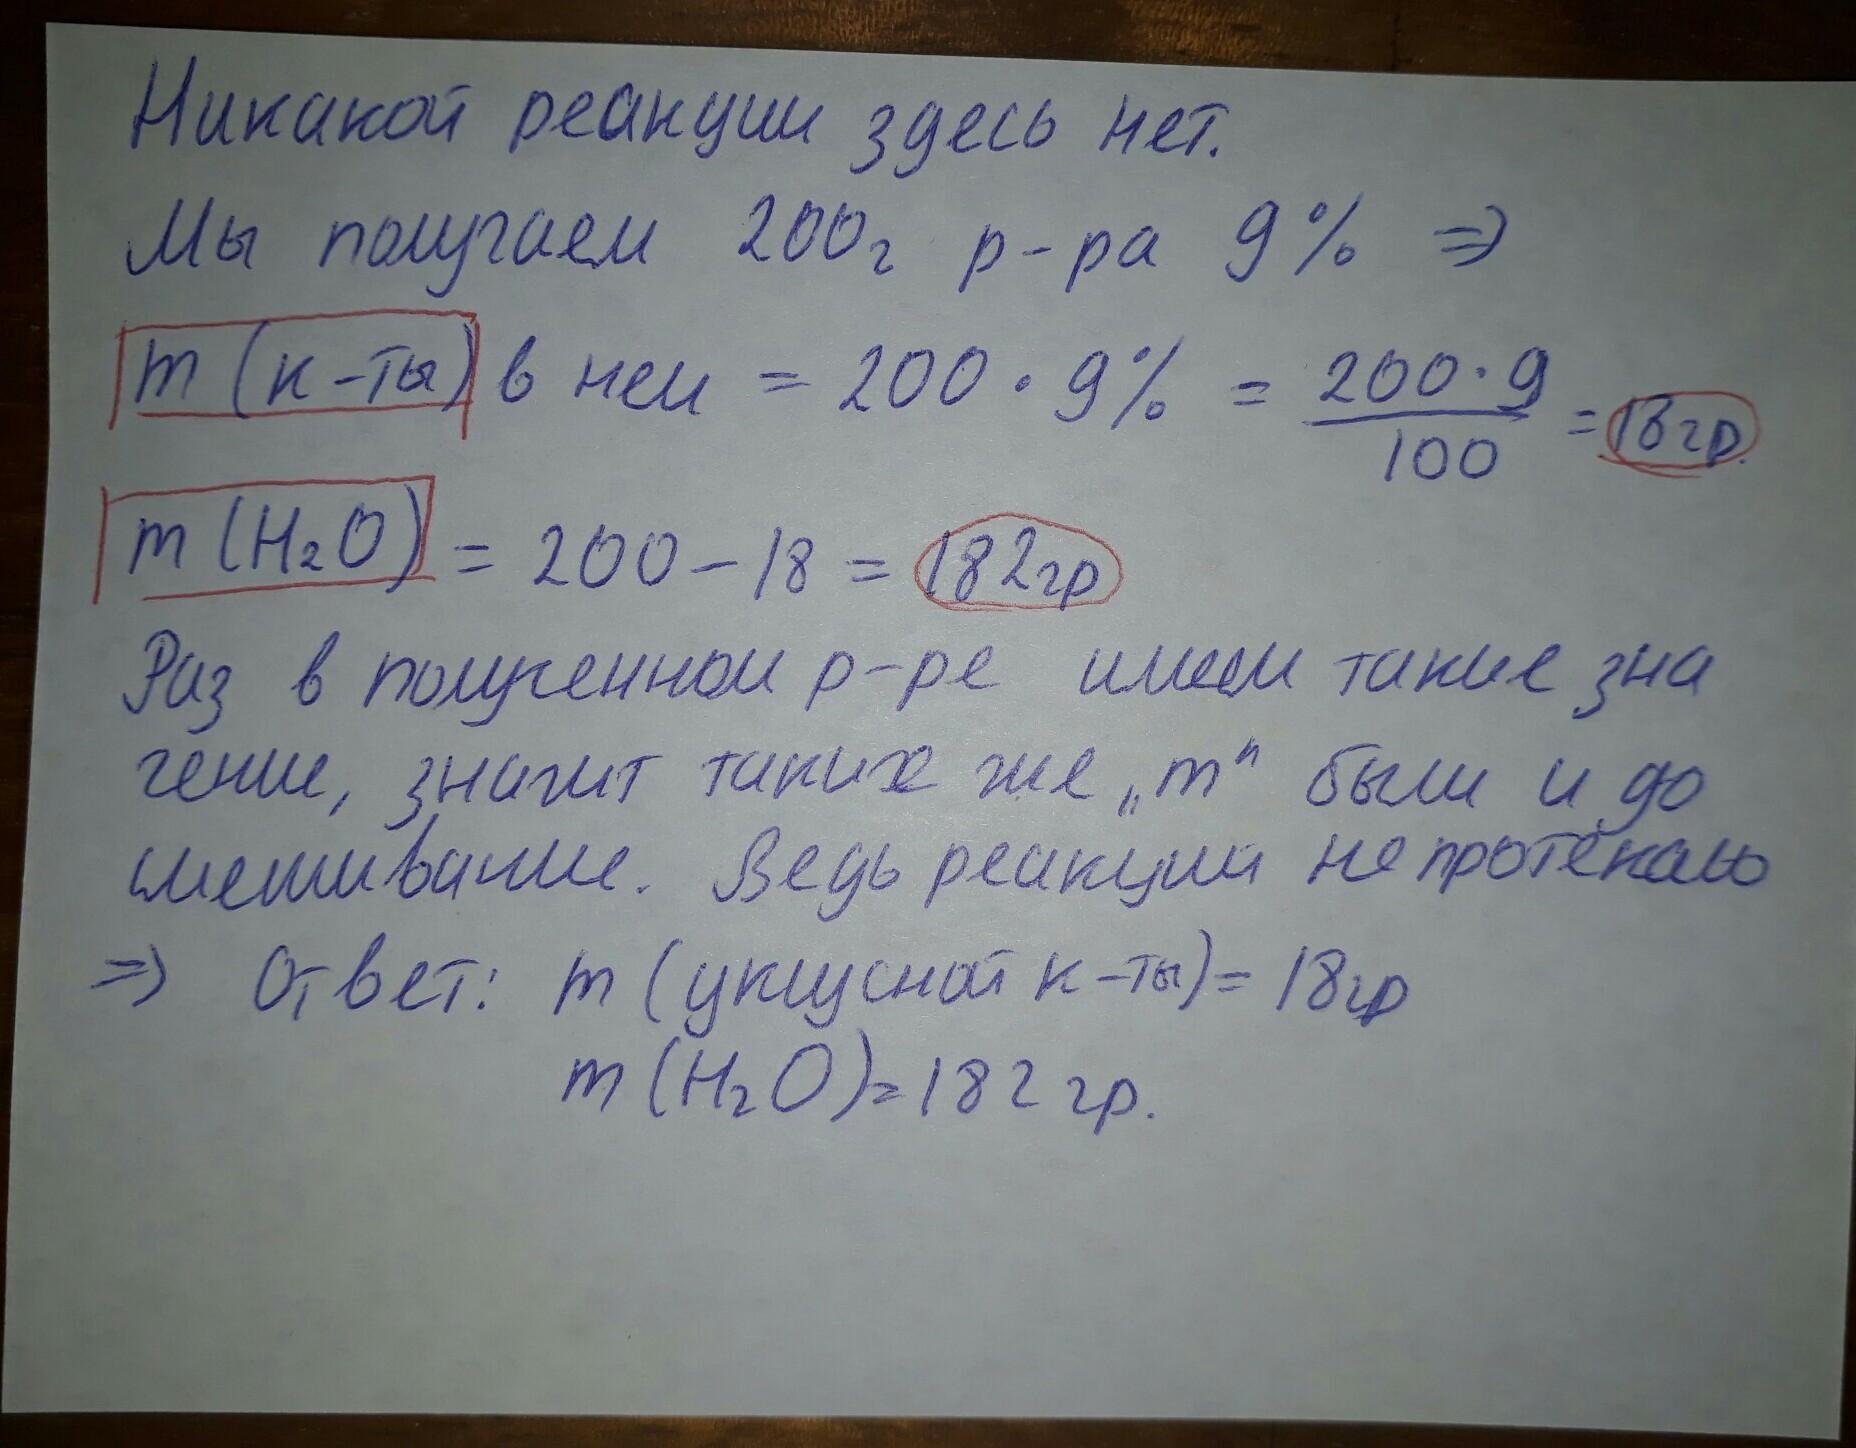 Никакой реакции здесь нет.
Мы получаем 200г р-ра 9% =>
m (к-ты) в нем = 200 · 9% = 200·9/100 = 18гр.
m (H₂O) = 200 - 18 = 182гр
Раз в полученном р-ре имеем такие зна
чение, значит таких же „m" были и до
смешивание. Ведь реакции не протекало
=> Ответ: m (уксусной к-ты) = 18гр
m (H₂O) = 182 гр.